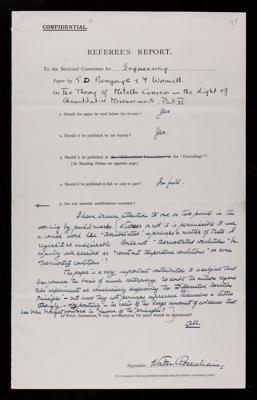 CONFIDENTIAL.
REFEREE'S REPORT.
To the Sectional Committee for Engineering
Paper by G.D. Bengough & F. Wormell
On The Theory of Metallic Corrosion in the Light of
Quantitative Measurements, Part VI
1. Should the paper be read before the Society? Yes
2. Should it be published by the Society? Yes.
3. Should it be published in the "Philosophical Transactions" or the "Proceedings"?
(See Standing Orders on opposite page.)
4. Should it be published in full or only in part? In full.
5. Are any material modifications necessary?
I have drawn attention to one or two points in the
wording by pencil marks. Whether or not it is permissible to use
a coined word like "thermostatted" is perhaps a matter of taste. I
regard it as undesirable. Could not "thermostatted conditions" be
equally well described as "constant temperature conditions" or even
"thermostat conditions"?
The paper is a very important contribution to a subject that
has formed the basis of much controversy. No doubt the authors regard
their experiments as conclusively disproving the Differential Aeration
Principle - but have they not perhaps expressed themselves a little
strongly - in view of the large amount of evidence that
has been brought forward in favour of the principle?
6. What illustrations, if any, accompanying the paper should be reproduced?
All.
Signature, Walter Rosenhain.
It is requested that any further remarks may be written on ordinary paper.